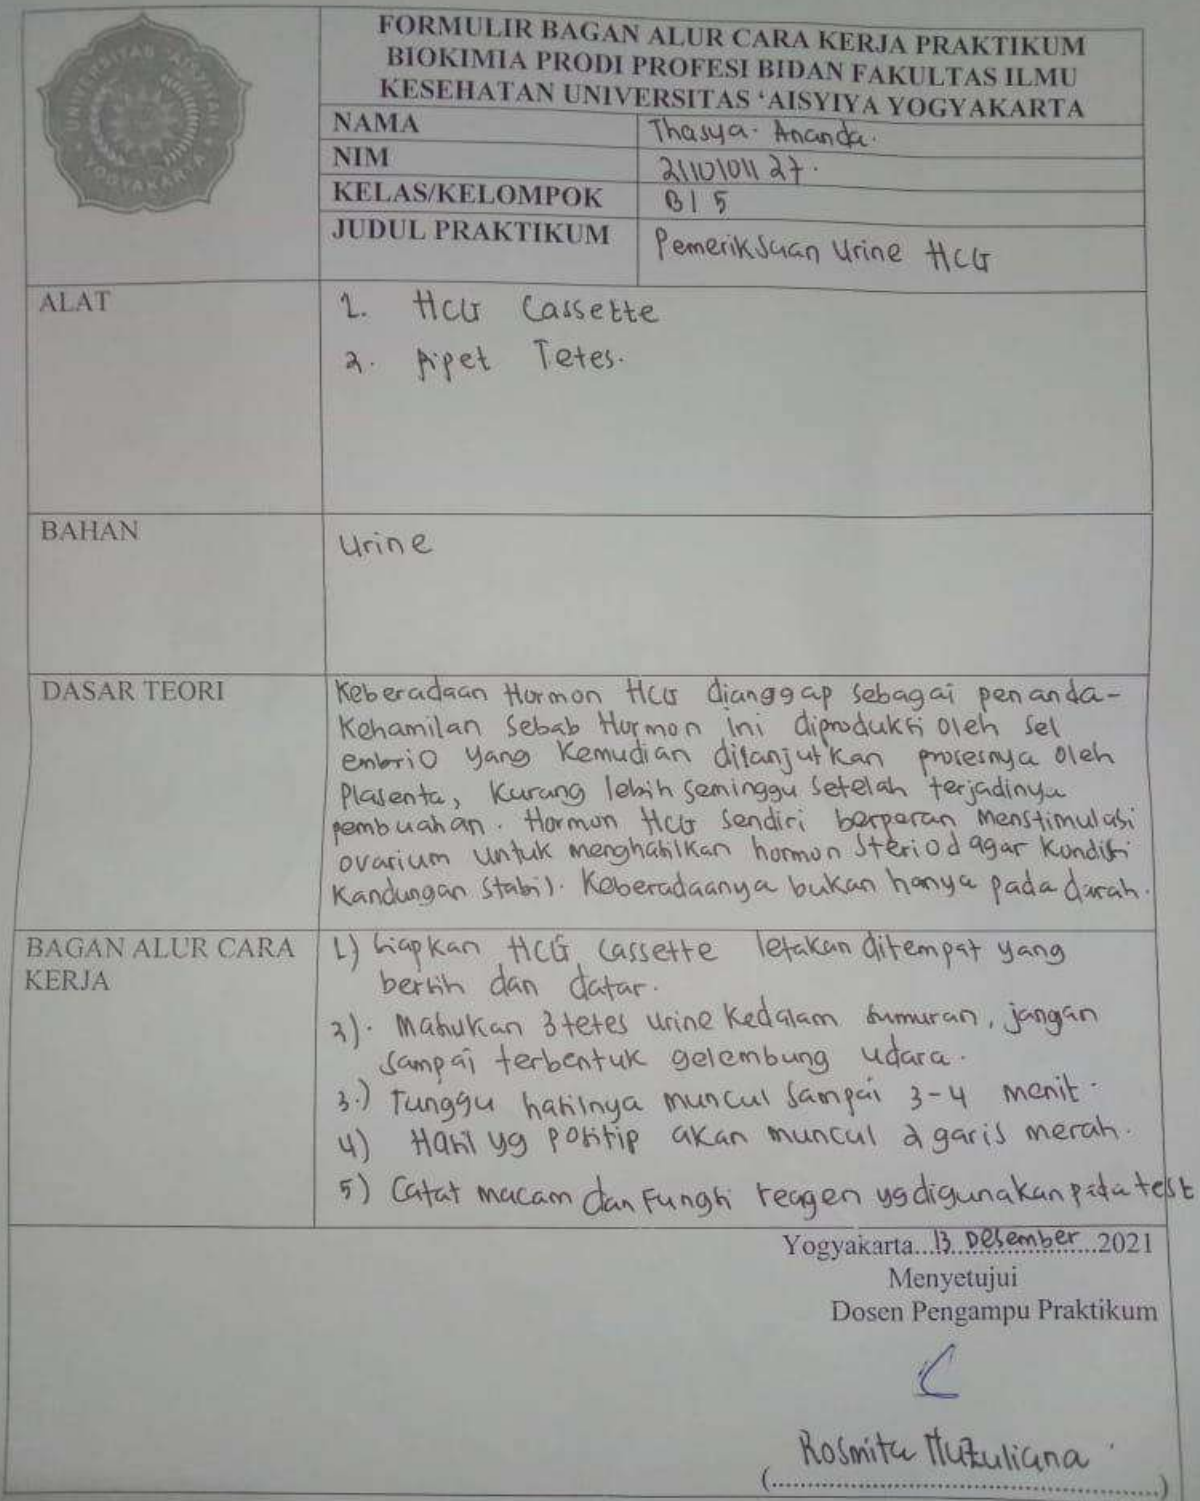 UNIVERSITAS 'AISYIYAH
YOGYAKARTA
FORMULIR BAGAN ALUR CARA KERJA PRAKTIKUM
BIOKIMIA PRODI PROFESI BIDAN FAKULTAS ILMU
KESEHATAN UNIVERSITAS ‘AISYIYA YOGYAKARTA
NAMA Thasya. Ananda.
NIM 2110101127.
KELAS/KELOMPOK B15
JUDUL PRAKTIKUM Pemeriksaan Urine HCG
ALAT 1. HCG Cassette
2. Pipet Tetes.
BAHAN Urine
DASAR TEORI Keberadaan Hormon HCG dianggap sebagai penanda-
Kehamilan Sebab Hormon ini diproduksi oleh sel
embrio yang Kemudian dilanjutkan prosesnya oleh
Plasenta, Kurang lebih seminggu setelah terjadinya
pembuahan. Hormon HCG sendiri berperan menstimulasi
ovarium untuk menghasilkan hormon Steriod agar Kondisi
Kandungan Stabil. Keberadaanya bukan hanya pada darah.
BAGAN ALUR CARA 1) Siapkan HCG Cassette letakan ditempat yang
KERJA bersih dan datar.
2). Masukan 3 tetes urine Kedalam sumuran, jangan
sampai terbentuk gelembung udara.
3.) Tunggu hasilnya muncul sampai 3-4 menit.
4) Hasil yg positip akan muncul 2 garis merah.
5) Catat macam dan Fungsi reagen yg digunakan pada test
Yogyakarta...13 Desember...2021
Menyetujui
Dosen Pengampu Praktikum
Rosmita Nuzuliana
(..............................................)